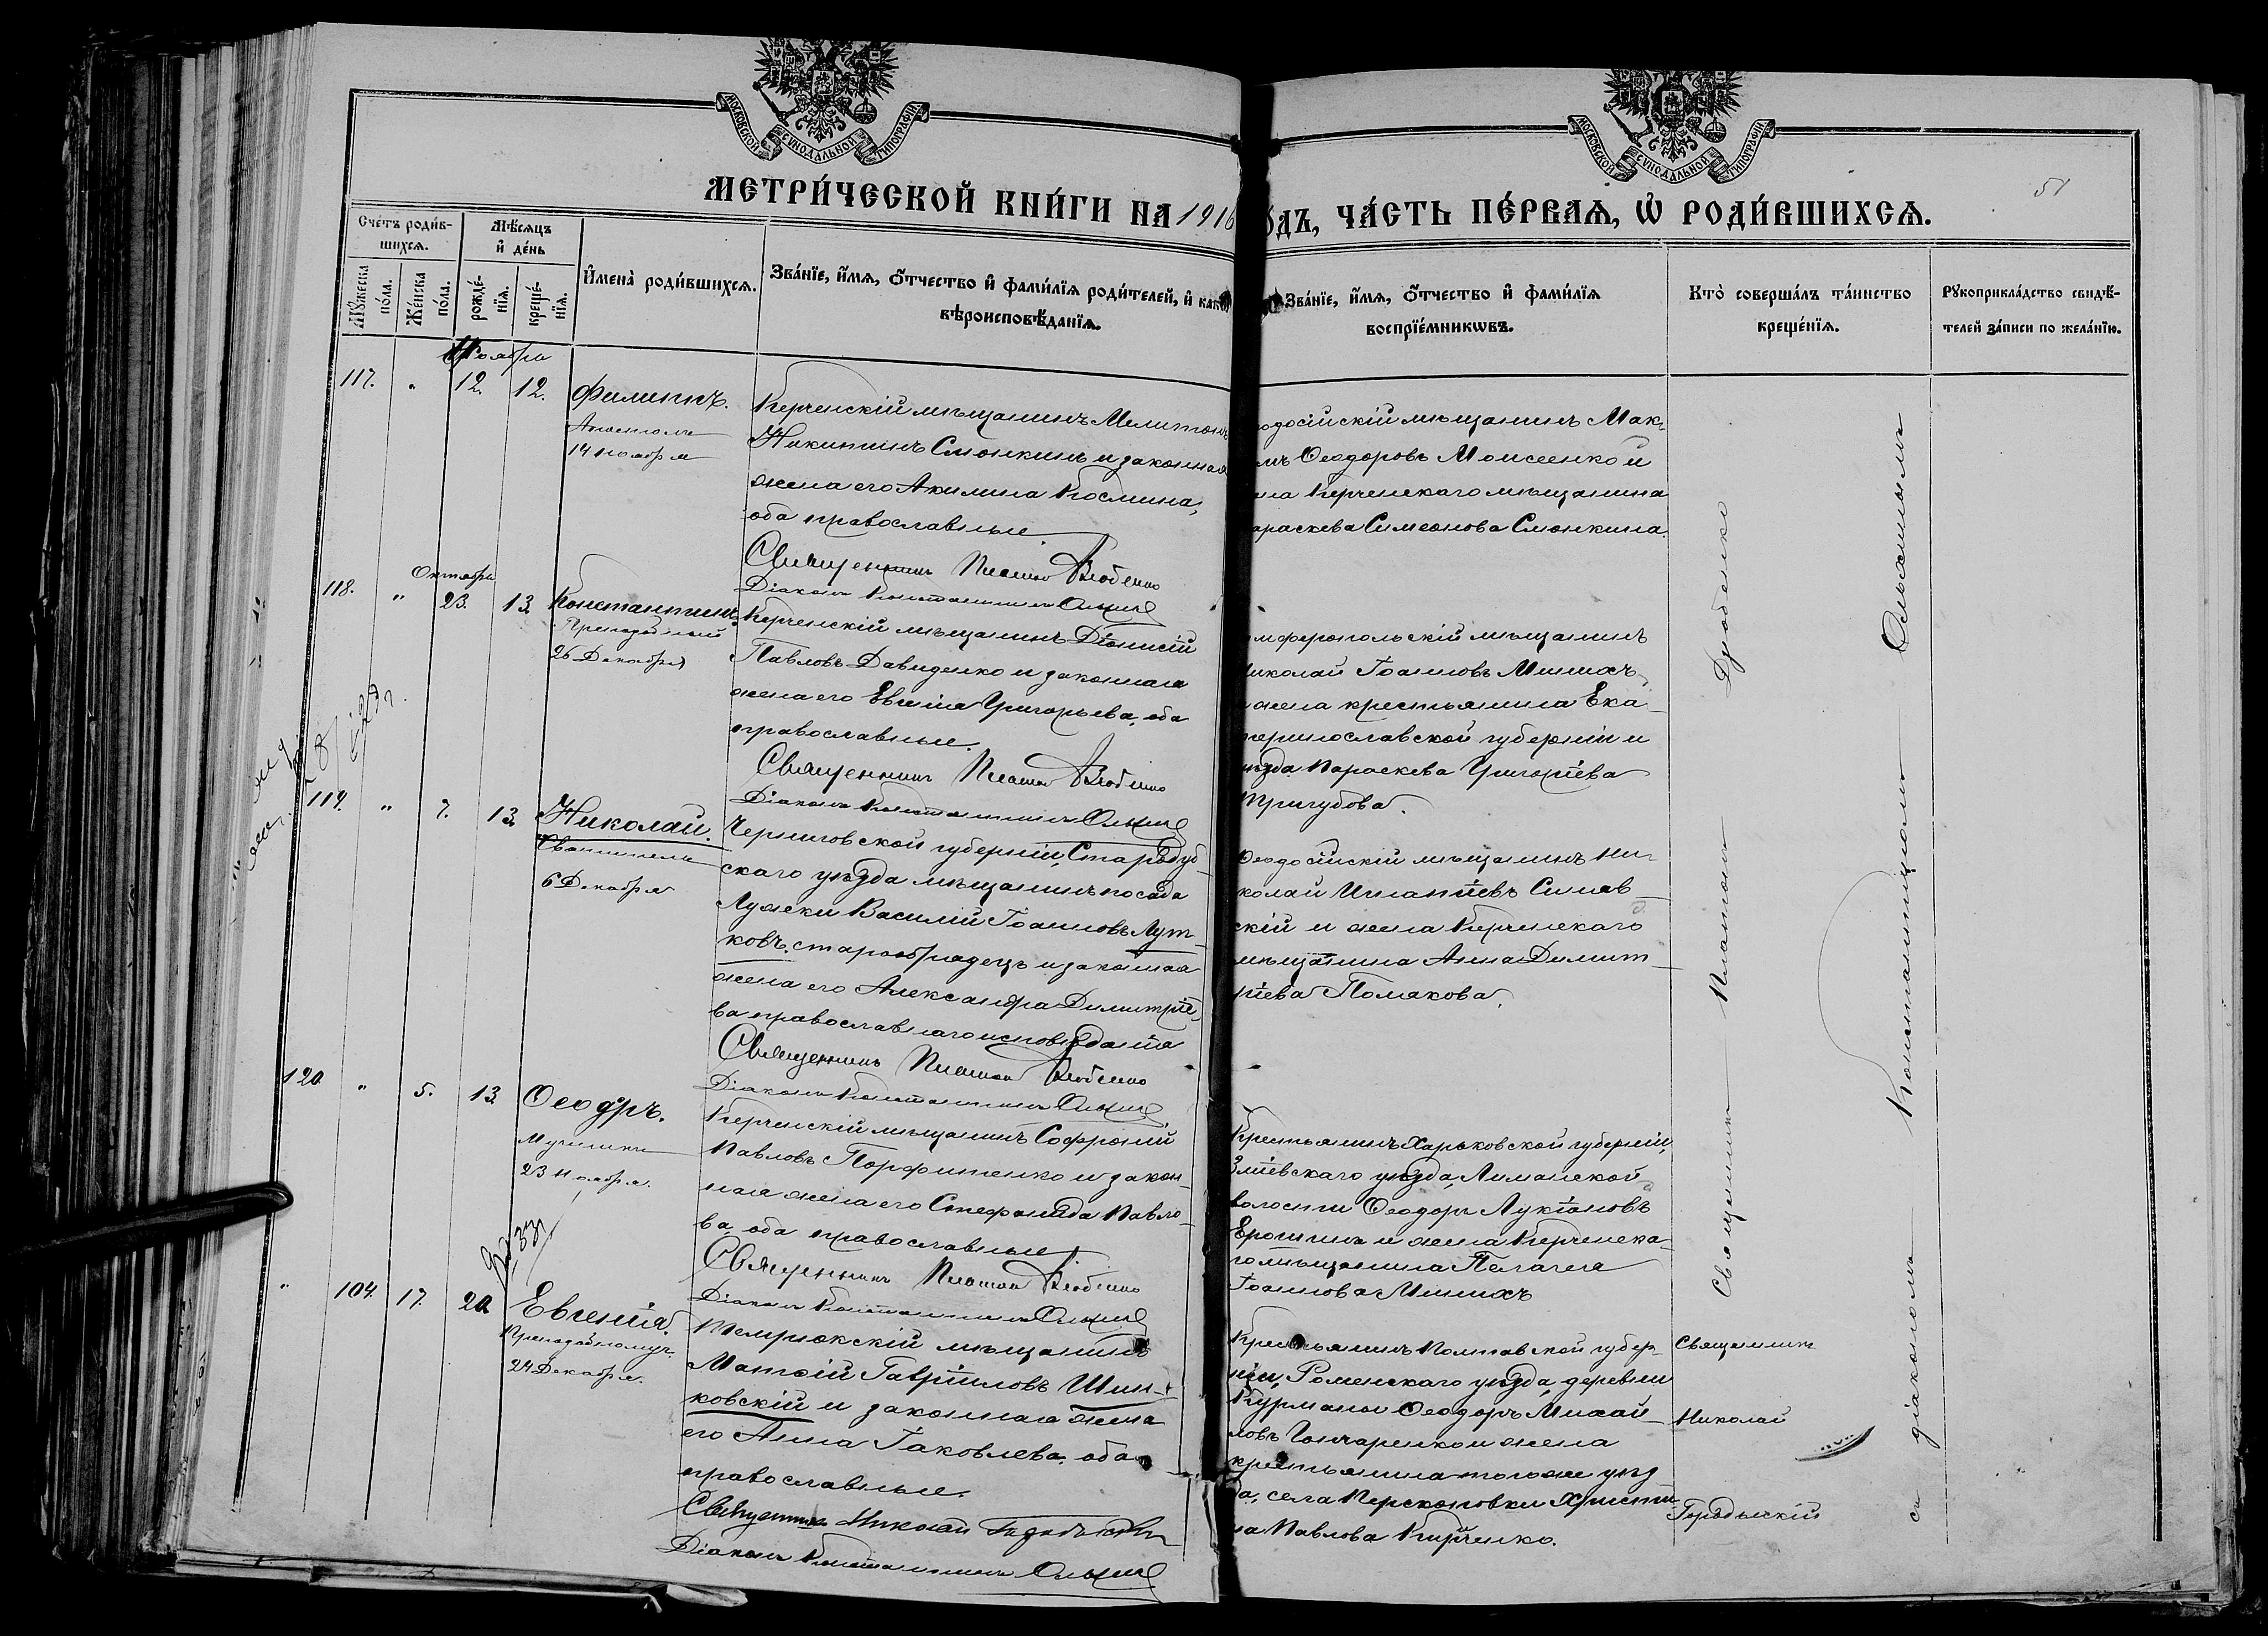 МОСКОВСКОЙ СѴНОДАЛЬНОЙ ТИПОГРАФІИ
МОСКОВСКОЙ СѴНОДАЛЬНОЙ ТИПОГРАФІИ
51
МЕТРИ́ЧЕСКОЙ КНИ́ГИ НА 1916
ѻ́ДЪ, ЧА́СТЬ ПЕ́РВАѦ, Ѡ҆ РОДИ́ВШИХСѦ.
Сче́тъ роди́в-
шихсѧ.
Мꙋжеска по́ла.
Же́нска по́ла.
Мѣ́сѧцъ
и҆ де́нь
рожде́нїѧ.
креще́нїѧ.
И҆мена̀ роди́вшихсѧ.
Зва́нїе, и҆́мѧ, ѻ҆́тчество и҆ фами́лїѧ роди́телей, и҆ како
вѣроисповѣ́данїѧ.
Зва́нїе, и҆́мѧ, ѻ҆́тчество и҆ фами́лїѧ
воспрїе́мникѡвъ.
Кто̀ соверша́лъ та́инство
креще́нїѧ.
Рꙋкоприкла́дство свидѣ́-
телей за́писи по жела́нїю.
Ноября
117. " 12. 12. Филиппъ.
Апостола
14 ноября
Керченскій мѣщанинъ Мелитонъ
Никитинъ Смонкинъ и законная
жена его Акилина Космина,
оба православные.
Священникъ Платонъ
Діаконъ Константинъ
одосійскій мѣщанинъ Мак-
мъ Ѳеодоровъ Моисеенко и
на Керченскаго мѣщанина
араскева Симеонова Смонкина.
Октября
118. " 23. 13. Константинъ.
Преподобный
26 Декабря
Керченскій мѣщанинъ Діонисій
Павловъ Давиденко и законная
жена его Евгенія Григорьева, оба
православные.
Священникъ Платонъ
Діаконъ Константинъ
мферопольскій мѣщанинъ
иколай Іоанновъ Минихъ
жена крестьянина Ека-
теринославской губерніи и
уѣзда Параскева Григоріева
Тригубова.
119. " 7. 13. Николай.
Святитель
6 Декабря
Черниговской губерніи, Стародуб-
скаго уѣзда мѣщанинъ посада
Лужки Василій Іоанновъ Лут-
ковъ, старообрядецъ и законная
жена его Александра Димитріе-
ва православнаго исповѣданія
Священникъ Платонъ
Діаконъ Константинъ
Ѳеодосійскій мѣщанинъ Ни-
колай Игнатіевъ Синяв-
скій и жена Керченскаго
мѣщанина Анна Димит-
ріева Полякова.
120 " 5. 13. Ѳеодръ.
Мученикъ
23 Ноября.
Керченскій мѣщанинъ Софроній
Павловъ Порфитенко и закон-
ная жена его Стефанида Павло-
ва, оба православные
Священникъ Платонъ
Діаконъ Константинъ
Крестьянинъ Харьковской губерніи,
Зміевскаго уѣзда, Лиманской
волости Ѳеодоръ Лукіановъ
Ерошинъ и жена Керченска-
го мѣщанина Пелагея
Іоаннова Минихъ
" 104. 17. 20 Евгенія.
Преподобномуч.
24 Декабря.
Темрюкскій мѣщанинъ
Матѳій Гавріиловъ Шин-
ковскій и законная жена
его Анна Іаковлева, оба
православные.
Священникъ Николай
Діаконъ Константинъ
Крестьянинъ Полтавской губер-
ніи, Роменскаго уѣзда, деревни
Курманы Ѳеодоръ Михай-
ловъ Гончаренко и жена
крестьянина того же уѣз
да, села Перекоповки Христи-
на Павлова Кириченко.
Священникъ
Николай
Городынскій
Священникъ Платонъ
съ діакономъ Константиномъ